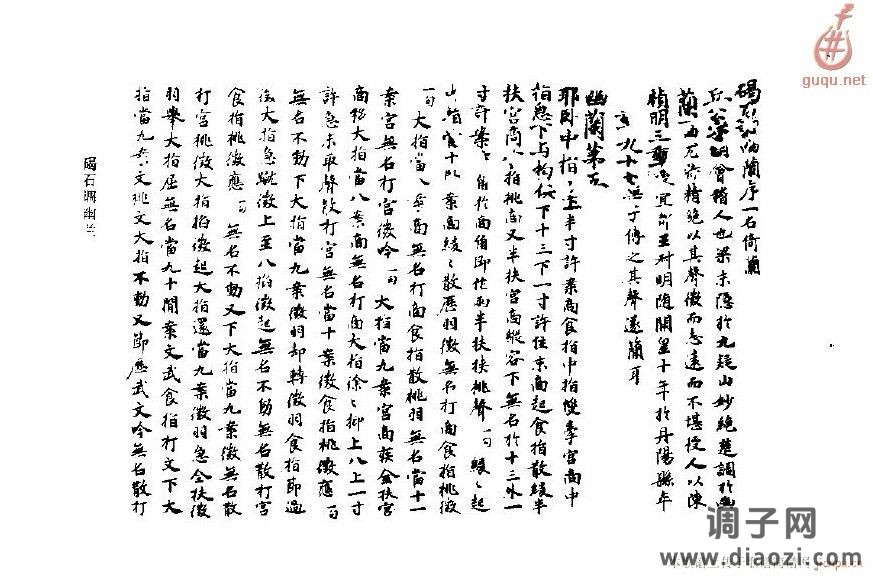 碣石調幽蘭序一名倚蘭
丘公字明會稽人也梁末隱於九疑山妙絕楚調於幽
蘭一曲尤特精絕以其聲微而志遠而不堪授人以陳
禎明三年授宜都王叔明隨開皇十年於丹陽縣卒
年九十七無子傳之其聲遂簡耳
幽蘭第五
耶臥中指〻半寸許案商食指中指雙牽宮商中
指急下与拘俱下十三下一寸許住末商起食指散緩半
扶宮商食指挑商又半扶宮商縱容下無名於十三外一
寸許案商角於商角即作兩半扶挾挑聲一句緩〻起
案商緩〻散歷羽徵無名打商食指挑徵
一句大指當八案商無名打商食指散挑羽無名當十一
案宮無名打宮徵吟一句大指當九案宮商疾全扶宮
商移大指當八案商無名打商大指徐〻抑上八上一寸
許急末取聲散打宮無名當十案徵食指挑徵應一句
無名不動下大指當九案徵羽却轉徵羽食指節過
徵大指急蹴徵上至八掐徵起無名不動無名散打宮
食指挑徵應一句無名不動又下大指當九案徵無名散
打宮挑徵大指掐徵起大指還當九案徵羽急全扶徵
羽舉大指屈無名當九十間案文武食指打文下大
指當九案文挑文大指不動又節歷武文吟無名散打
碣石调幽兰
guqu.net
调子网
www.diaozi.com